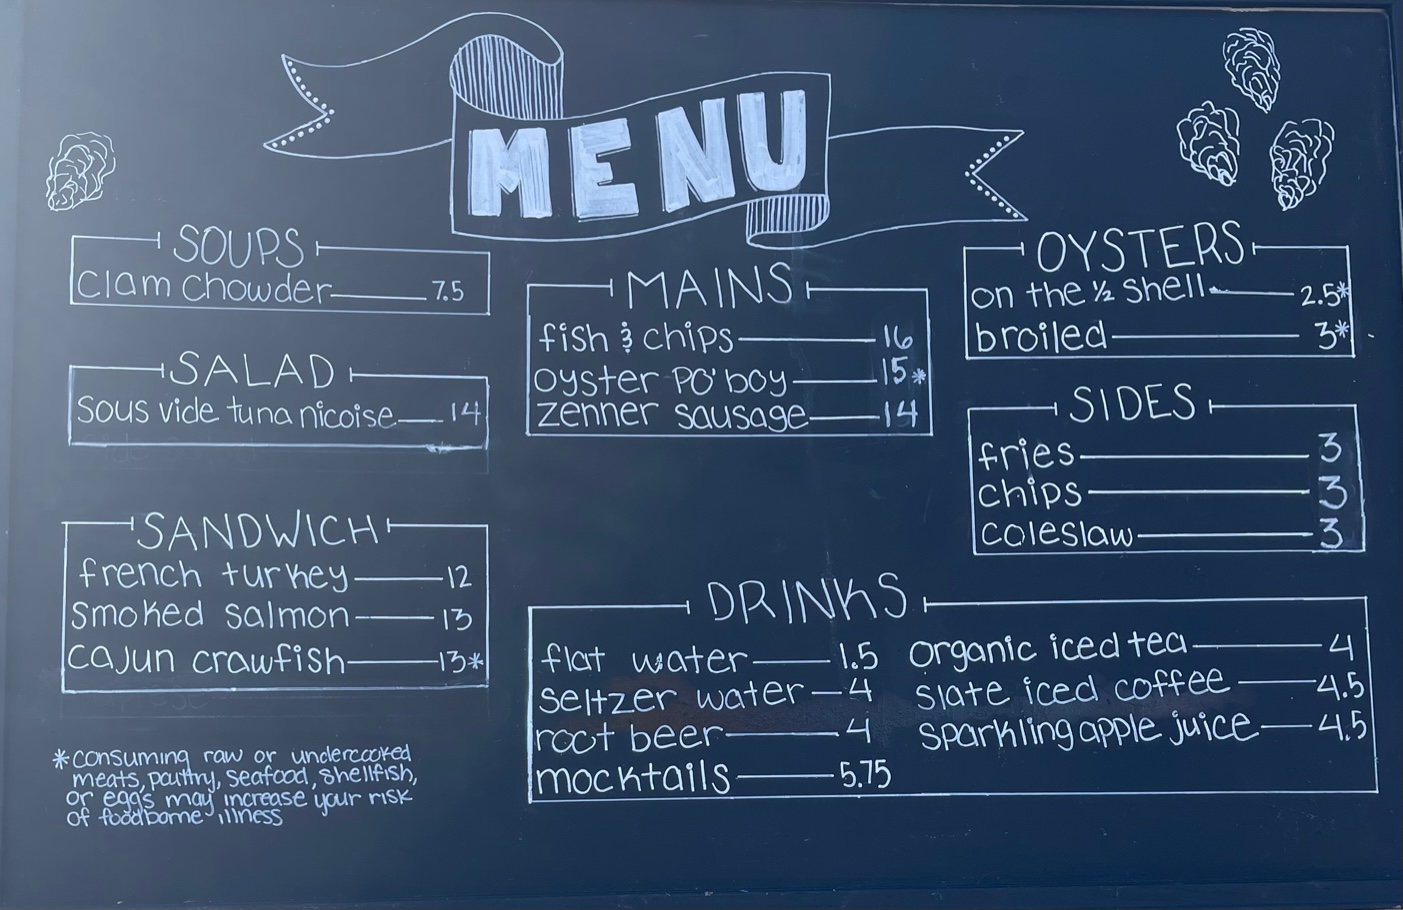 MENU
SOUPS
clam chowder 7.5
SALAD
sous vide tuna nicoise 14
SANDWICH
french turkey 12
smoked salmon 13
cajun crawfish 13*
*consuming raw or undercooked
meats, poultry, seafood, shellfish,
or eggs may increase your risk
of foodborne illness
MAINS
fish & chips 16
oyster po' boy 15*
zenner sausage 14
OYSTERS
on the ½ shell 2.5*
broiled 3*
SIDES
fries 3
chips 3
coleslaw 3
DRINKS
flat water 1.5
seltzer water 4
root beer 4
mocktails 5.75
organic iced tea 4
slate iced coffee 4.5
sparkling apple juice 4.5